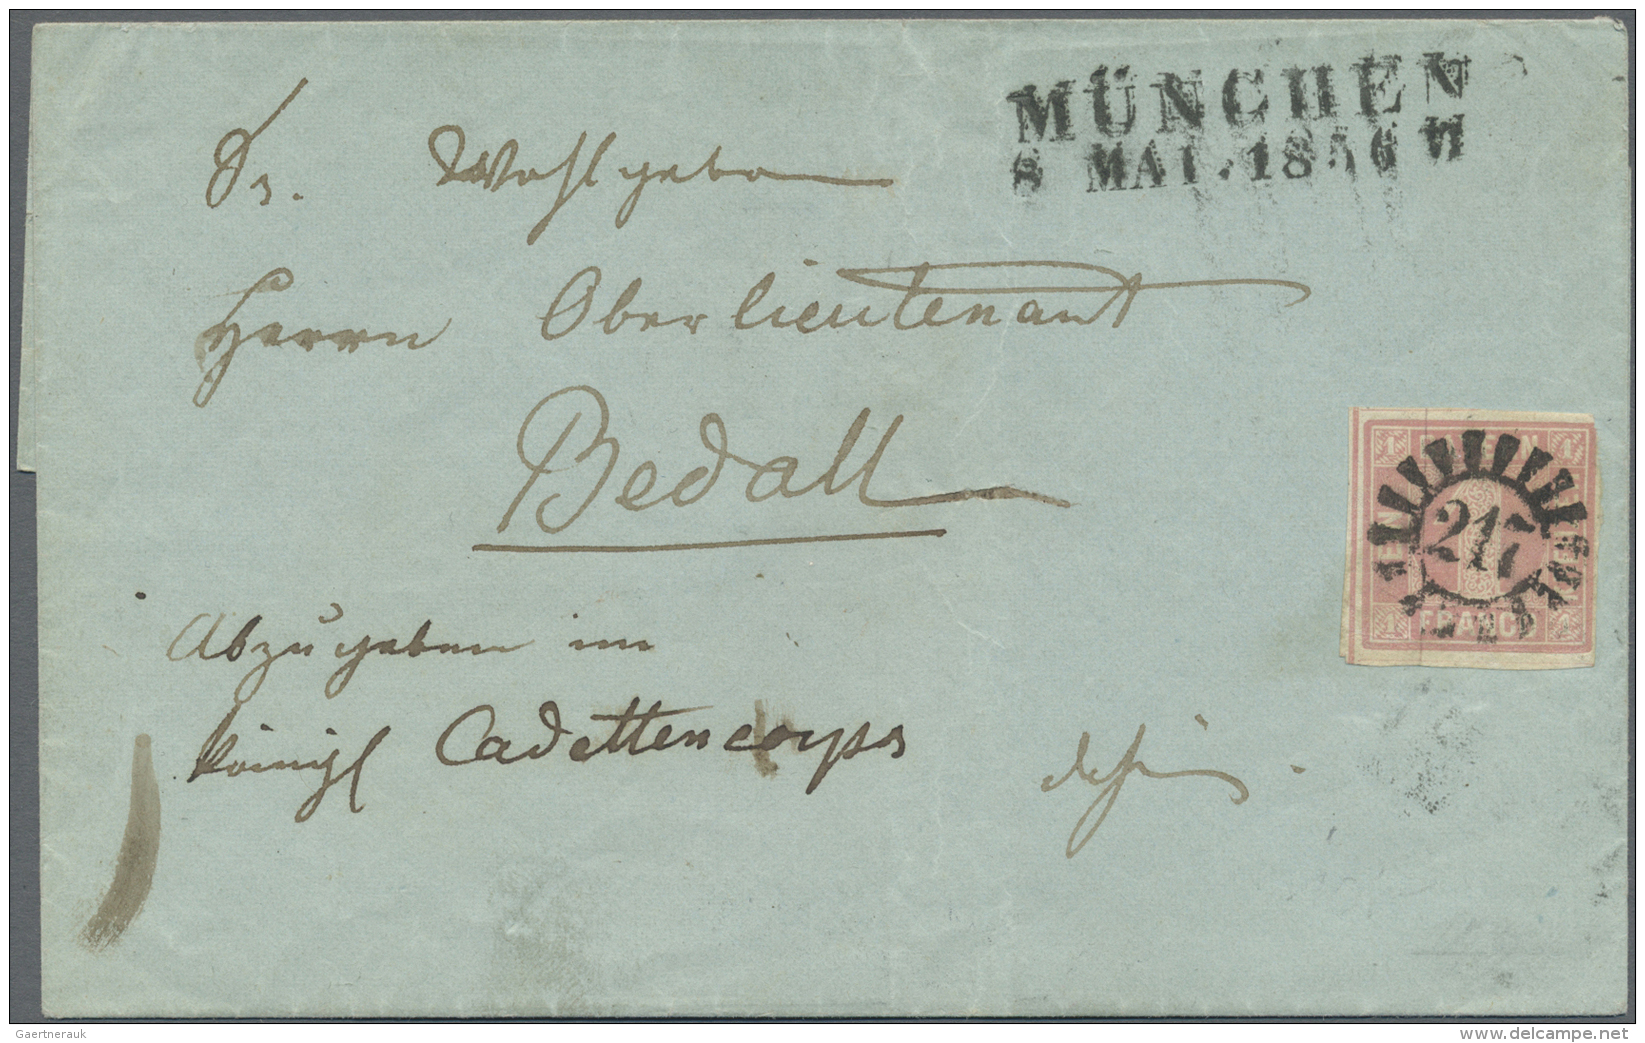 MÜNCHEN
8 MAI. 1856
Sr. Wohlgeborn
Herrn Oberlieutenant
Bedall
BAYERN
217
FRANCO
1
1
Abzugeben im
königl Cadettencorps
dahier.
Gaertnerauk
www.delcampe.net